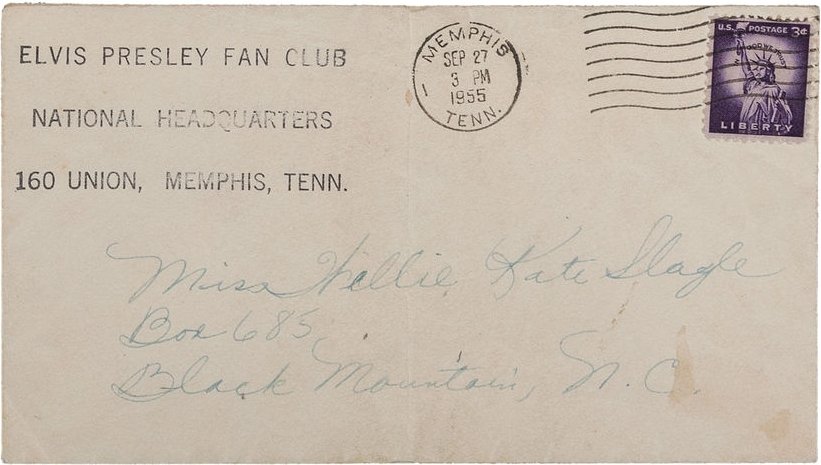 ELVIS PRESLEY FAN CLUB
NATIONAL HEADQUARTERS
160 UNION, MEMPHIS, TENN.
MEMPHIS
SEP 27
3 PM
1955
TENN.
1
U.S. POSTAGE 3¢
IN GOD WE TRUST
LIBERTY
Miss Willie Kate Slagle
Box 685,
Black Mountain, N.C.